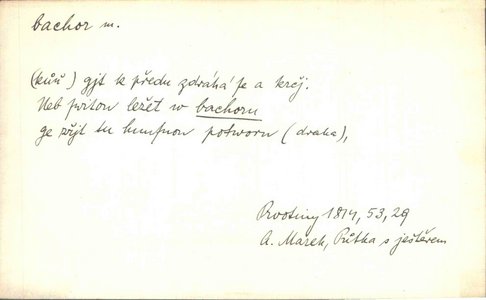 bachor m.
(kůň) gjt k předu zdráhá se a krčj.
Neb pritom ležet w bachoru
ge zřjt tu potworu (draka),
Prvotiny 1814, 53, 29
A. Marek, Půtka s ještěrem